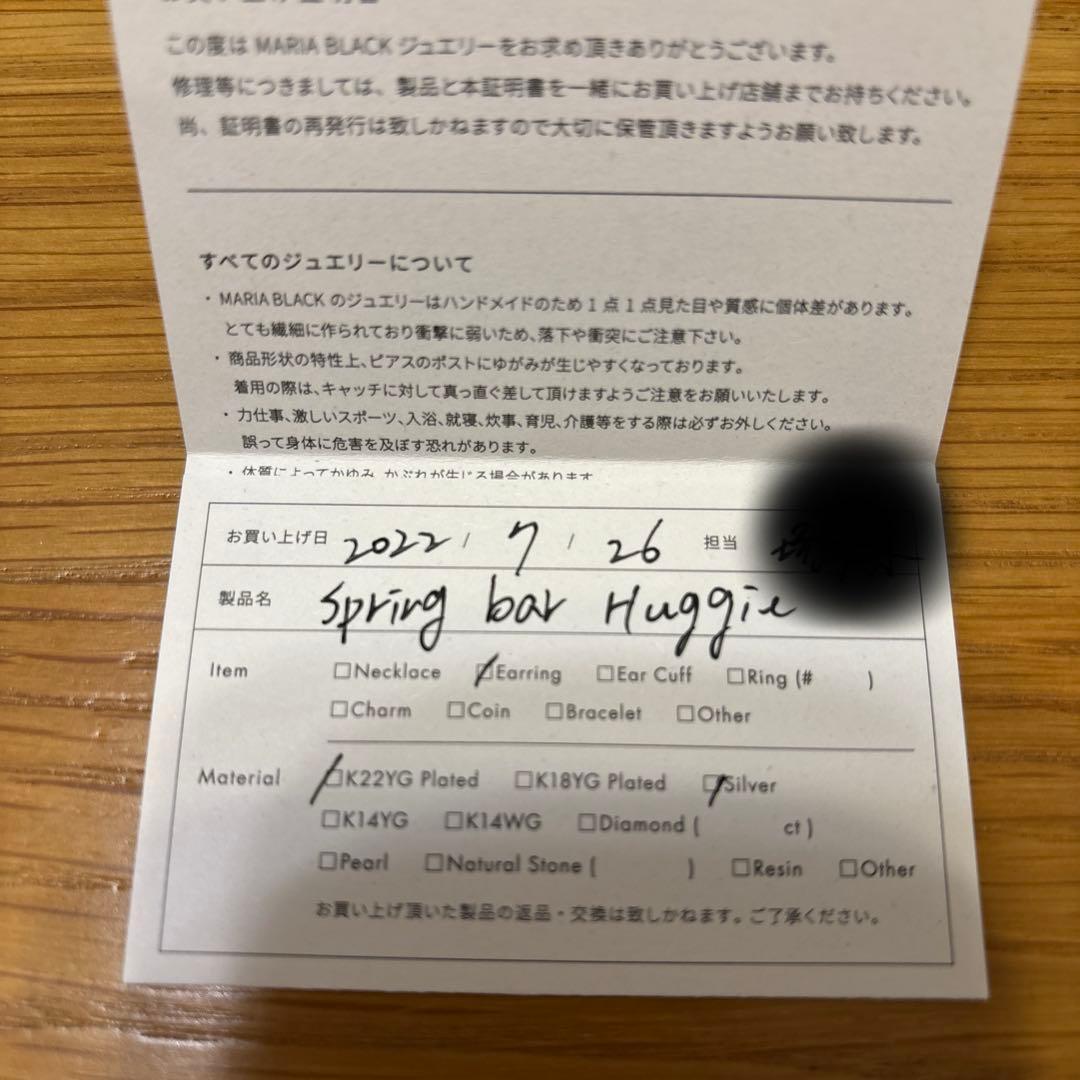 この度は MARIA BLACK ジュエリーをお求め頂きありがとうございます。
修理等につきましては、製品と本証明書を一緒にお買い上げ店舗までお持ちください。
尚、証明書の再発行は致しかねますので大切に保管頂きますようお願い致します。
すべてのジュエリーについて
・MARIA BLACK のジュエリーはハンドメイドのため 1 点 1 点見た目や質感に個体差があります。
とても繊細に作られており衝撃に弱いため、落下や衝突にご注意下さい。
・商品形状の特性上、ピアスのポストにゆがみが生じやすくなっております。
着用の際は、キャッチに対して真っ直ぐ差して頂けますようご注意をお願いいたします。
・力仕事、激しいスポーツ、入浴、就寝、炊事、育児、介護等をする際は必ずお外しください。
誤って身体に危害を及ぼす恐れがあります。
・体質によってかゆみ、かぶれが生じる場合があります
お買い上げ日 2022 / 7 / 26 担当
製品名 Spring bar Huggie
Item □Necklace □Earring □Ear Cuff □Ring (# )
□Charm □Coin □Bracelet □Other
Material □K22YG Plated □K18YG Plated □Silver
□K14YG □K14WG □Diamond ( ct )
□Pearl □Natural Stone ( ) □Resin □Other
お買い上げ頂いた製品の返品・交換は致しかねます。ご了承ください。